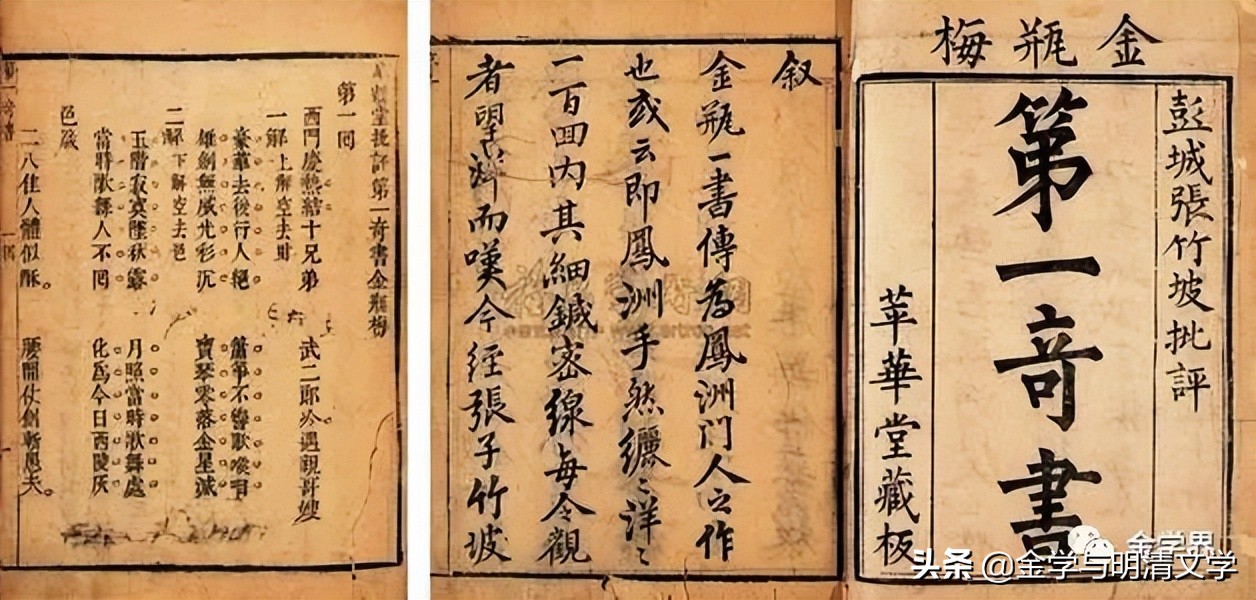 金瓶梅
彭城張竹坡批評
第一奇書
苹華堂藏板
叙
金瓶一書傳為鳳洲門人之作
也或云即鳳洲手然纚〻洋〻
一百回内其細鍼密線每令觀
者望洋而嘆今經張子竹坡
堂批評第一奇書金瓶梅
第一回
西門慶熱結十兄弟 武二郎冷遇親哥嫂
一解 上解空去財
豪華去後行人絕 簫箏不響歌喉咽
雄劍無威光彩沉 寶琴零落金星滅
二解 下解空去色
玉階寂寞墜秋露 月照當時歌舞處
當時歌舞人不回 化為今日西陵灰
色箴
二八佳人體似酥。 腰間仗劍斬愚夫。
金学界
头条 @金学与明清文学